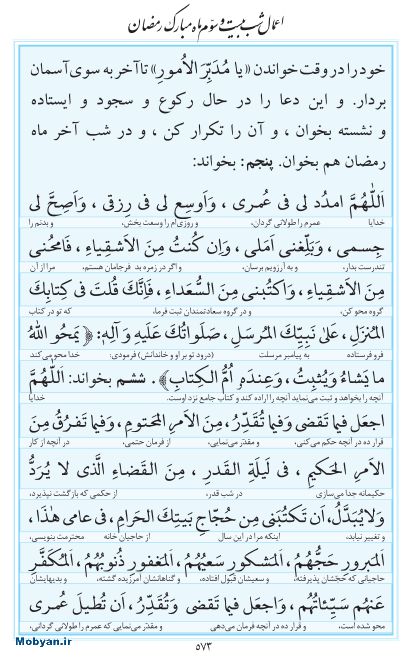 اعمال شب بیست و سوم ماه مبارک رمضان
خود را در وقت خواندن «یا مُدَبِّرَ الأُمورِ» تا آخر به سوی آسمان
بردار. و این دعا را در حال رکوع و سجود و ایستاده
و نشسته بخوان ، و آن را تکرار کن ، و در شب آخر ماه
رمضان هم بخوان. پنجم: بخواند:
اَللّٰهُمَّ امدُد لی فی عُمری ، وَاَوسِع لی فی رِزقی ، وَاَصِحَّ لی
خدایا عمرم را طولانی گردان، و روزی‌ام را وسعت بخش، و بدنم را
جِسمی ، وَبَلِّغنی اَمَلی ، وَاِن کُنتُ مِنَ الأَشقِیاءِ ، فَامحُنی
تندرست بدار، و به آرزویم برسان، و اگر در زمره بد فرجامان هستم، مرا از آن
مِنَ الأَشقِیاءِ ، وَاکتُبنی مِنَ السُّعَداءِ ، فَاِنَّكَ قُلتَ فی کِتابِكَ
گروه محو کن، و در گروه سعادتمندان ثبت فرما، که تو در کتاب
المُنزَلِ ، عَلیٰ نَبِیِّكَ المُرسَلِ ، صَلَواتُكَ عَلَیهِ وَآلِهِ: ﴿ یَمحُو اللّٰهُ
فرو فرستاده به پیامبر مرسلت (درود تو بر او و خاندانش) فرمودی: خدا محو می‌کند
ما یَشاءُ وَیُثبِتُ ، وَعِندَهُ اُمُّ الکِتابِ ﴾. ششم بخواند: اَللّٰهُمَّ
آنچه را بخواهد و ثبت می‌نماید آنچه را اراده کند و کتاب جامع نزد اوست. خدایا
اجعَل فیما تَقضی وَفیما تُقَدِّرُ ، مِنَ الأَمرِ المَحتومِ ، وَفیما تَفرُقُ مِنَ
قرار ده در آنچه حکم می‌کنی، و مقدّر می‌نمایی، از فرمان حتمی، و در آنچه از کار
الأَمرِ الحَکیمِ ، فی لَیلَةِ القَدرِ ، مِنَ القَضاءِ الَّذی لا یُرَدُّ
حکیمانه جدا می‌سازی در شب قدر، از حکمی که بازگشت نپذیرد،
وَلا یُبَدَّلُ، اَن تَکتُبَنی مِن حُجّاجِ بَیتِكَ الحَرامِ، فی عامی هٰذا،
و تغییر نیابد، اینکه مرا در این سال از حاجیان خانه محترمت بنویسی،
المَبرورِ حَجُّهُم، المَشکورِ سَعیُهُم، المَغفورِ ذُنوبُهُم، المُکَفَّرِ
حاجیانی که حجّشان پذیرفته، و سعیشان قبول افتاده، و گناهانشان آمرزیده گشته، و بدیهایشان
عَنهُم سَیِّئاتُهُم ، وَاجعَل فیما تَقضی وَتُقَدِّرُ، اَن تُطیلَ عُمری
محو شده است، و قرار ده در آنچه فرمان می‌دهی و مقدّر می‌نمایی که عمرم را طولانی گردانی،
۵۷۳
Mobyan.ir